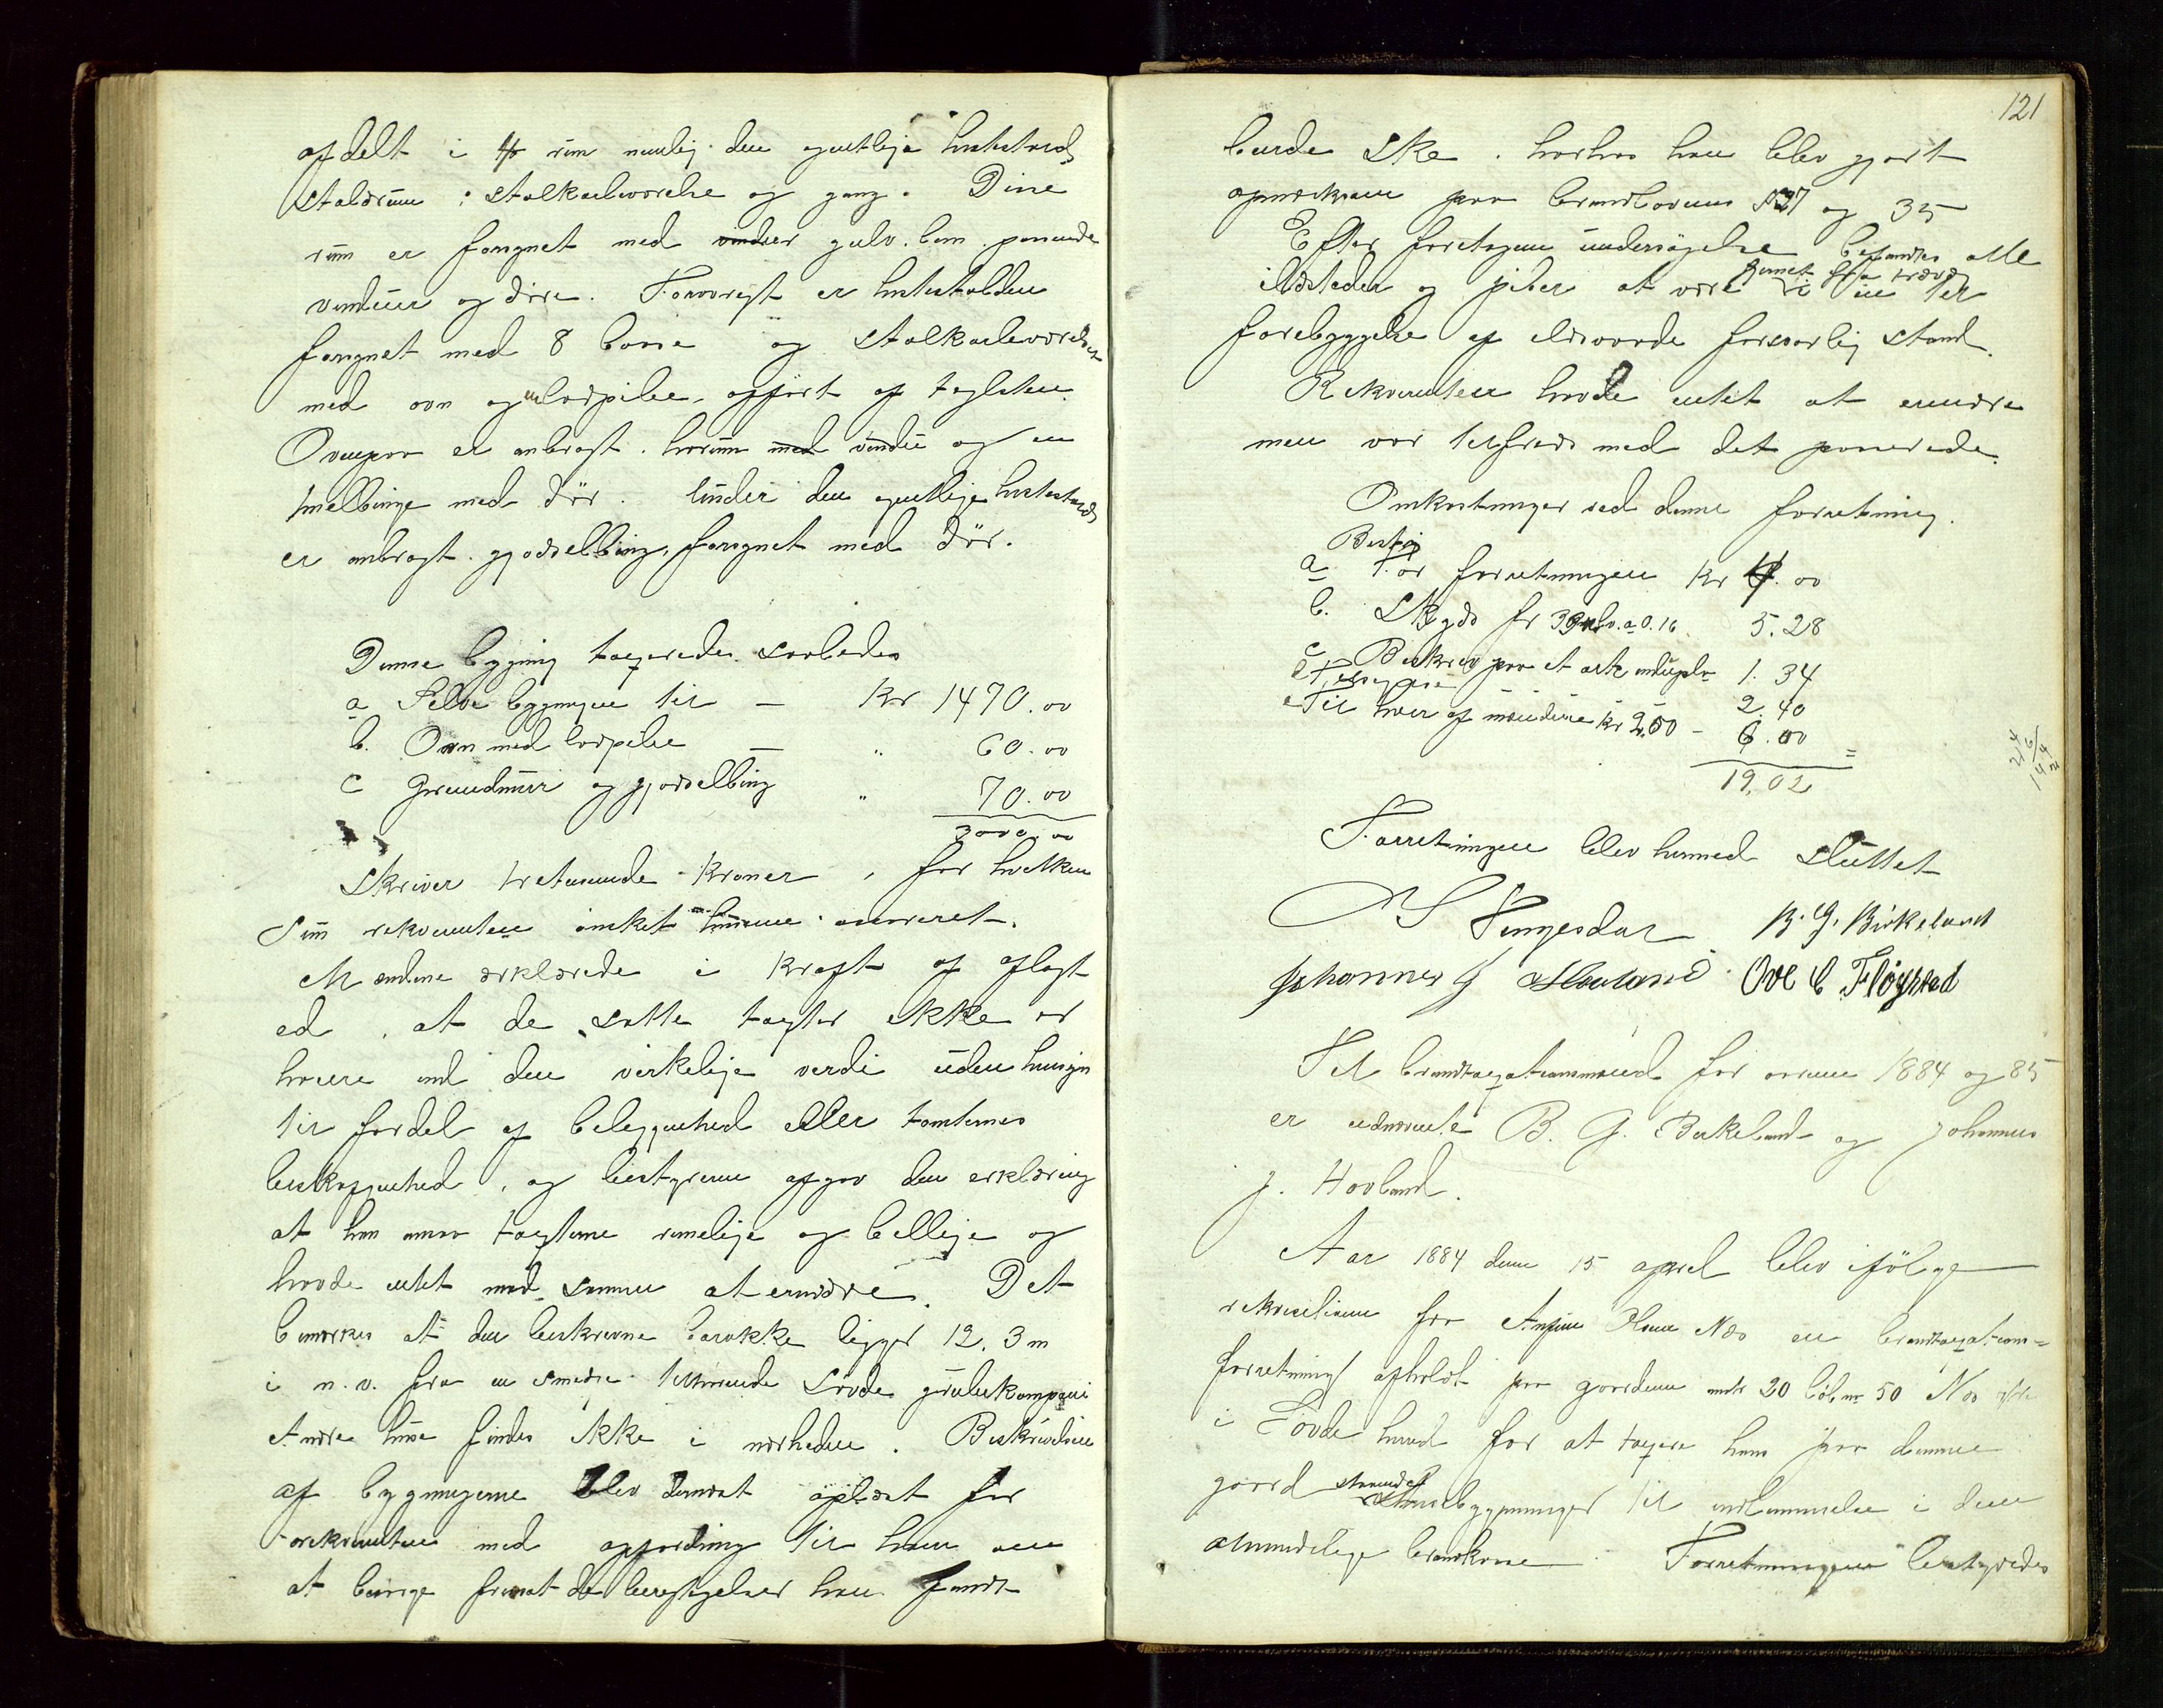 afdelt i 4 rum nemlig den egentlige hestestald,
staldrum, staldkarleværelse og gang. Disse
rum er forsynet med gulv. lem. panende
vinduer og døre. Forøvrigt er hestestalden
forsynet med 8 baase og stalkarleværelset
med ovn og en lodpibe, opført af teglsten.
Ovenpaa er anbragt hørum med vindu og en
hmellbinge med dør. Under den egentlige hestestald
er anbragt gjødselbing, forsynet med dør.
Denne bygning taxeredes saaledes
a Selve bygningen til — Kr 1470.00
b. Ovn med lodpibe — " 60.00
c Grundmur og gjødselbing " 70.00
3000.00
Skriver tretusinde Kroner, for hvilken
Sum rekvirenten ønsket husene assureret.
Mændene erklærede i kraft af aflagt
ed, at de satte taxter ikke er
høiere end den virkelige verdi uden hensyn
til fordel af beleggenhed eller tomternes
beskaffenhed, og bestyreren afgav den erklæring
at han ansaa taxterne rimelige og billige og
havde intet mod samme at erindre. Det
bemerkes at den beskrevne barakke ligger 12.3 m
i n.v. fra en smedie tilhørende Sovde grubekompani
Andre huse findes ikke i nærheden. Beskrivelsen
af bygningerne blev dernæst oplæst for
rekvirenten med opfordring til ham om
at besørge fremsat de berigtigelser han fandt
121
burde ske. hvorhos han blev gjort
opmerksom paa brandlovens § 27 og 35
Efter foretagen undersøgelse befandtes alle
ildsteder og piber at være i en til
forebyggelse af ildsvaade forsvarlig stand.
Rekvirenten havde intet at erindre
men var tilfreds med det passerede.
Omkostninger ved denne forretning.
a For forretningen Kr 4.00
b. Skyds for 33 a 0.16 5.28
c Beskrev paa et ark 1.34
2.40
e Til hver af mændene kr 2.00 – 6.00
19,02
Forretningen blev hermed sluttet
Tengesdal B. G. Birkeland
Johannes J Hovland Ove C. Fløgstad
Til brandtaxationsmænd for aarene 1884 og 85
er udnævnte B. G. Birkeland og Johannes
J. Hovland.
Aar 1884 den 15 april blev ifølge
rekvisition fra Olsen Næs en brandtaxations-
forretning afholdt paa gaarden mtr 20 løbnr 50 Næs
i Sovde herred for at taxere hans paa denne
gaard bygninger til indlemmelse i den
almindelige brandkasse. Forretningen bestyredes